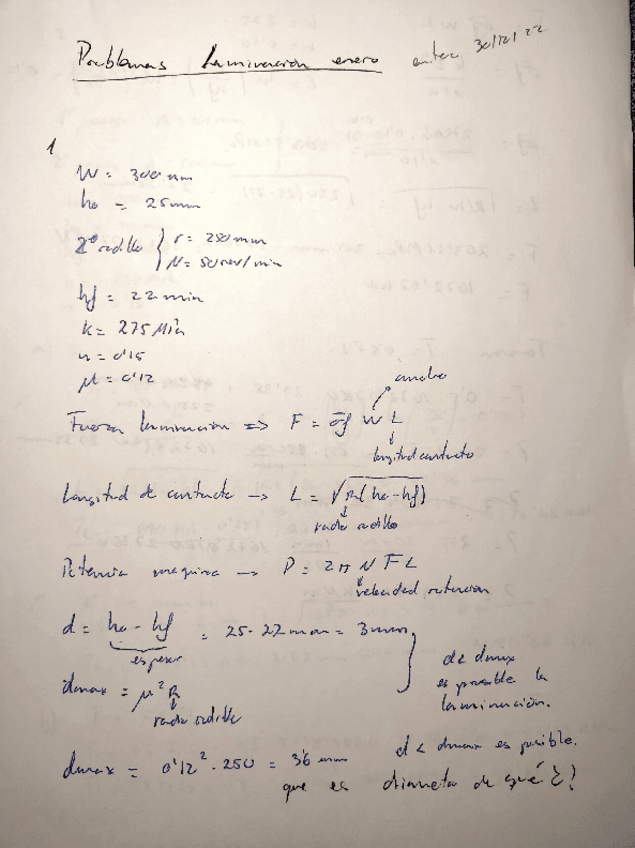 Problemas laminacion enero
30/12/22
1
W = 300 mm
ho = 25mm
2º rodillo { r = 250mm
N = 50 rev/min
hf = 22 mm
k = 275 MPa
n = 0'15
μ = 0'12
ancho
Fuerza laminacion => F = σf W L
longitud contacto
Longitud de contacto -> L = √R(ho-hf)
radio rodillo
Potencia maquina -> P = 2π N F L
velocidad rotacion
d = ho - hf = 25-22 mm = 3mm
espesor
dmax = μ² R
radio rodillo
d< dmax
es posible la
laminación.
dmax = 0'12² · 250 = 3'6 mm d < dmax es posible.
que es diametro de qué ¿?